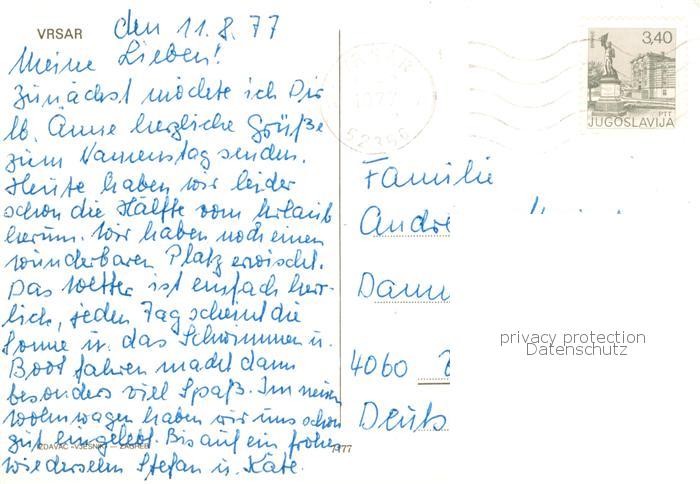 VRSAR
den 11.8.77
Meine Lieben!
Zunächst möchte ich Dir
lb. Anne herzliche Grüße
zum Namenstag senden.
Heute haben wir leider
schon die Hälfte vom Urlaub
herum. Wir haben noch einen
wunderbaren Platz erwischt.
Das Wetter ist einfach herr-
lich, jeden Tag scheint die
Sonne u. das Schwimmen u.
Boot fahren macht dann
besonders viel Spaß. Im neuen
Wohnwagen haben wir uns schon
gut eingelebt. Bis auf ein frohes
Wiedersehn Stefan u. Käte.
IZDAVAČ »VJESNIK« — ZAGREB
52366
3,40
PTT
JUGOSLAVIJA
Familie
André
4060
Deuts
privacy protection
Datenschutz